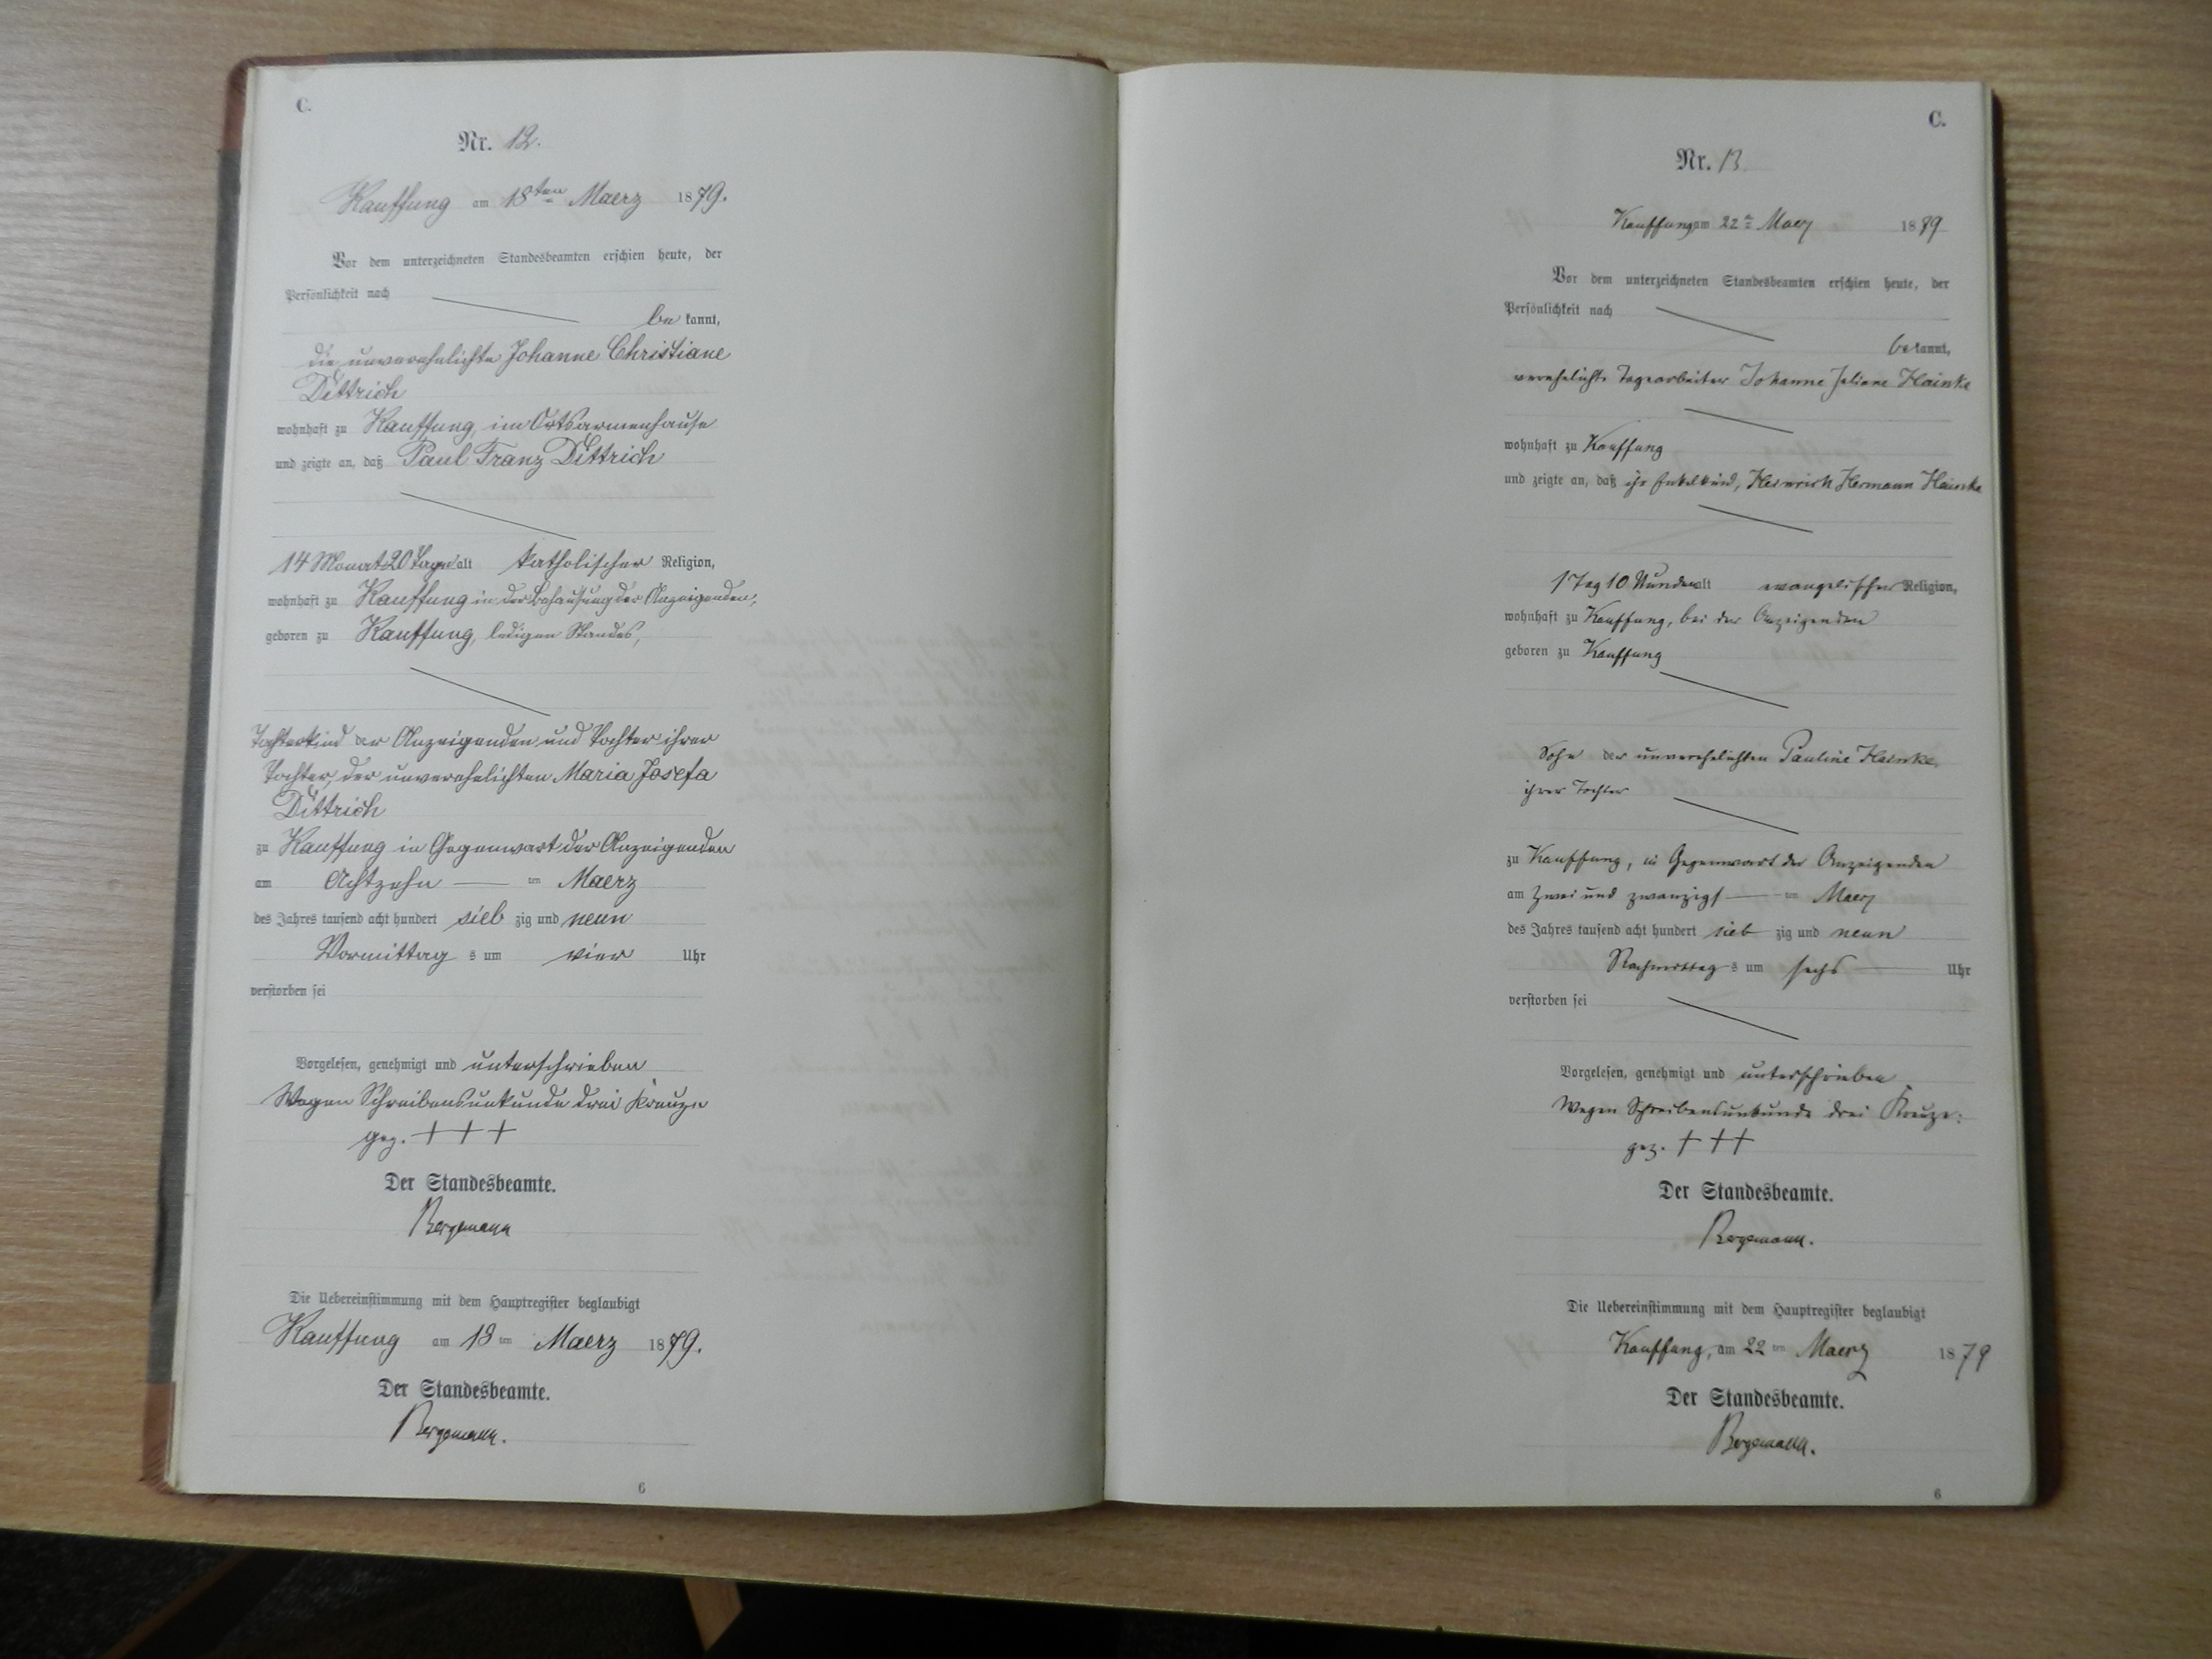 C.
Nr. 12.
Kauffung am 18ten Maerz 1879.
Vor dem unterzeichneten Standesbeamten erschien heute, der
Persönlichkeit nach
be kannt,
die unverehelichte Johanne Christiane
Dittrich
wohnhaft zu Kauffung, im Ortsarmenhause
und zeigte an, daß Paul Franz Dittrich
14 Monat 20 Tage alt katholischer Religion,
wohnhaft zu Kauffung in der Behausung der Anzeigenden,
geboren zu Kauffung, ledigen Standes,
Tochterkind der Anzeigenden und Tochter ihrer
Tochter, der unverehelichten Maria Josefa
Dittrich
zu Kauffung in Gegenwart der Anzeigenden
am Achtzehn ten Maerz
des Jahres tausend acht hundert sieb zig und neun
Vormittag s um vier Uhr
verstorben sei
Vorgelesen, genehmigt und unterschrieben
Wegen Schreibensunkunde drei Kreuze
gez. + + +
Der Standesbeamte.
Bergemann
Die Uebereinstimmung mit dem Hauptregister beglaubigt
Kauffung am 18 ten Maerz 1879.
Der Standesbeamte.
Bergemann.
6
C.
Nr. 13
Kauffung am 22 Maerz 1879
Vor dem unterzeichneten Standesbeamten erschien heute, der
Persönlichkeit nach
be kannt,
verehelichte Tagearbeiter Johanne Juliane Hainke
wohnhaft zu Kauffung
und zeigte an, daß ihr Enkelkind, Heinrich Hermann Hainke
1 Tag 10 Stunden alt evangelischer Religion,
wohnhaft zu Kauffung, bei der Anzeigenden
geboren zu Kauffung
Sohn der unverehelichten Pauline Hainke,
ihrer Tochter
zu Kauffung, in Gegenwart der Anzeigenden
am zwei und zwanzigs ten Maerz
des Jahres tausend acht hundert sieb zig und neun
Nachmittag s um sechs Uhr
verstorben sei
Vorgelesen, genehmigt und unterschrieben
Wegen Schreibensunkunde drei Kreuze:
gez. + + +
Der Standesbeamte.
Bergemann.
Die Uebereinstimmung mit dem Hauptregister beglaubigt
Kauffung, am 22 ten Maerz 1879
Der Standesbeamte.
Bergemann.
6